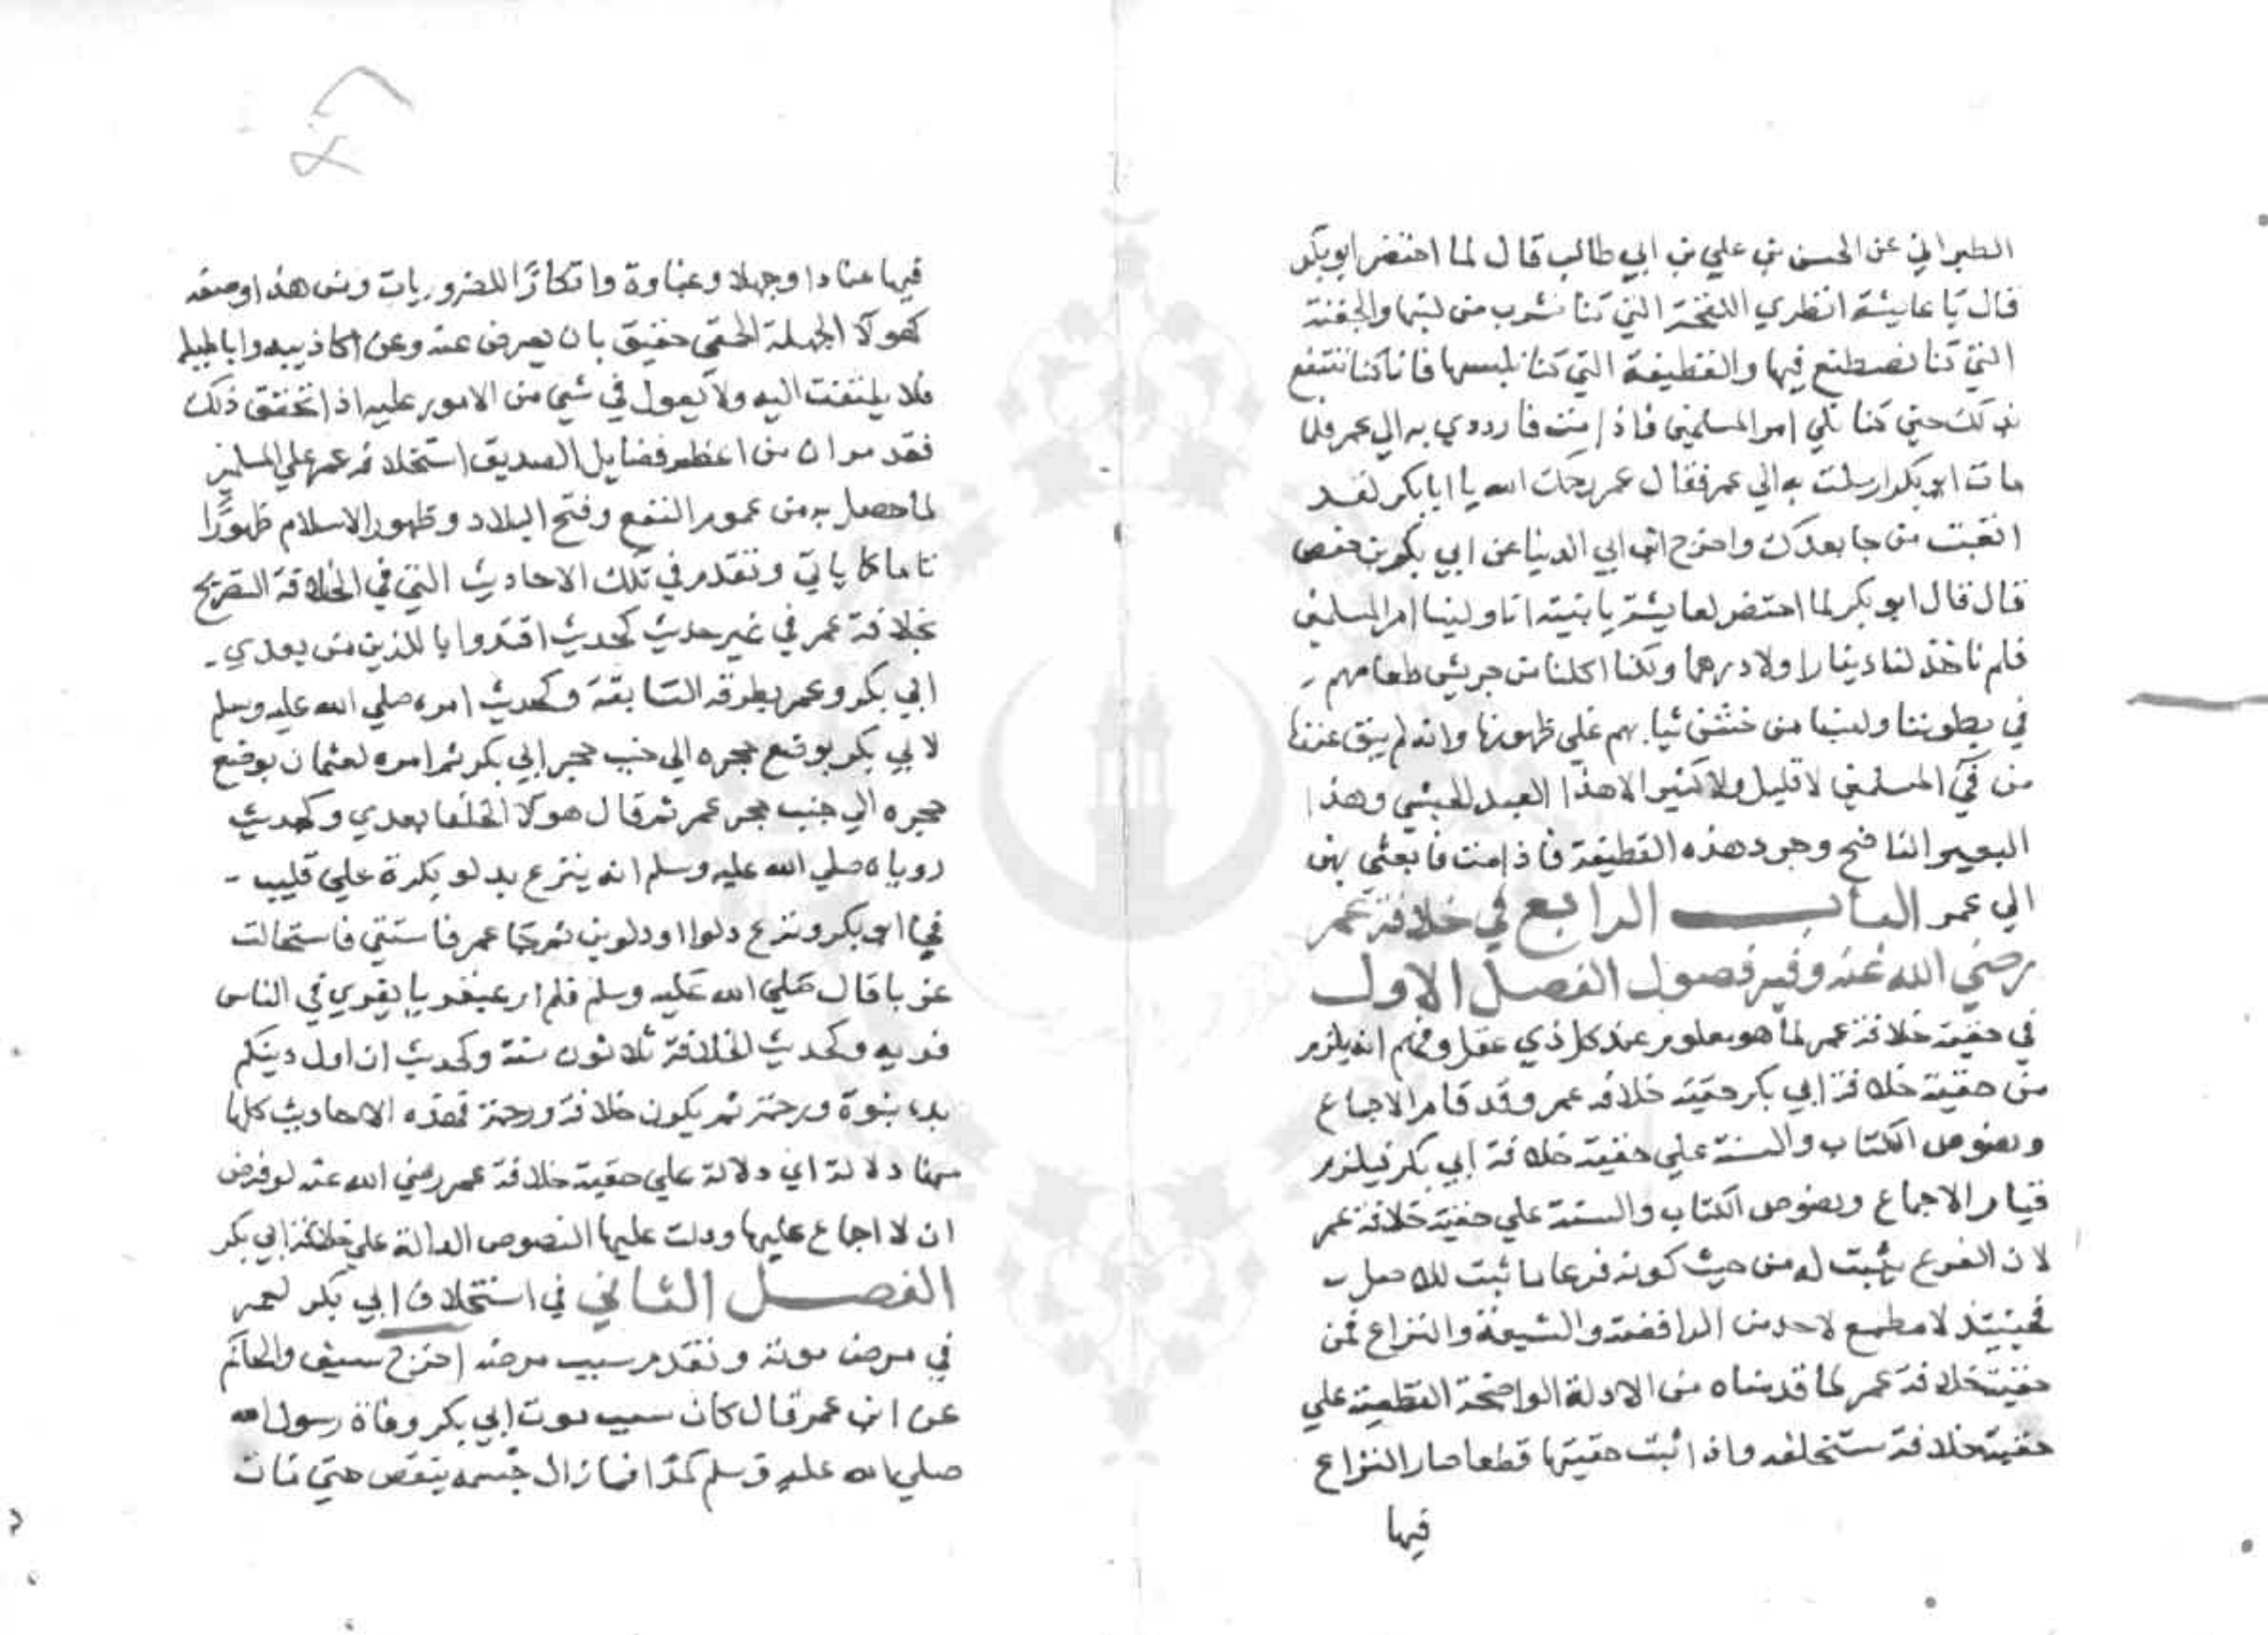 الطبراني عن الحسن بن علي بن ابي طالب قال لما احتضر ابو بكر
قال يا عايشة انظري اللقحة التي كنا نشرب من لبنها والجفنة
التي كنا نصطبغ فيها والقطيفة التي كنا نلبسها فانا كنا ننتفع
بذلك حتي كنا نلي امر المسلمين فاذا مت فارددي به الي عمر فلما
مات ابو بكر ارسلت به الي عمر فقال عمر رحمك الله يا ابا بكر لقد
اتعبت من جا بعدك واخرج ابن ابي الدنيا عن ابي بكر بن حفص
قال قال ابو بكر لما احتضر لعايشة يا بنية انا ولينا امر المسلمين
فلم ناخذ لنا دينارا ولا درهما ولكنا اكلنا من جريش طعامهم
في بطوننا ولبسنا من خشن ثيابهم علي ظهورنا وانه لم يبق عندنا
من في المسلمين لا قليل ولا كثير الا هذا العبد الحبشي وهذا
البعير الناضح وجرد هذه القطيفة فاذا مت فابعثي بهن
الي عمر الباب الرابع في خلافة عمر
رضي الله عنه وفيه فصول الفصل الاول
في حقية خلافة عمر لما هو معلوم عند كل ذي عقل وفهم انه يلزم
من حقية خلافة ابي بكر حقية خلافه عمر وقد قام الاجماع
ونصوص الكتاب والسنة علي حقية خلافة ابي بكر فيلزم
قيام الاجماع ونصوص الكتاب والسنة علي حقية خلافة عمر
لان الفرع يثبت له من حيث كونه فرعا ما ثبت للاصل
فحينيذ لا مطمع لاحد من الرافضة والشيعة والنزاع فمن
حقية خلافة عمر لما قدمناه من الادلة الواضحة القطعية علي
حقية خلافة مستخلفه واذا ثبت حقيتها قطعا صار النزاع
فيها
فيها عنادا وجهلا وغباوة وانكارا للضروريات ومن هذا وصفه
كهولا الجهلة الحمقي حقيق بان يعرض عنه وعن اكاذيبه واباطيله
فلا يلتفت اليه ولا يعول في شي من الامور عليه اذا تحقق ذلك
فقد مر ان من اعظم فضايل الصديق استخلافه عمر علي المسلمين
لما حصل به من عموم النفع وفتح البلاد وظهور الاسلام ظهورًا
تاما كا ياتي وتقدم في تلك الاحاديث التي في الخلافة التصريح
بخلافة عمر في غير حديث كحديث اقتدوا باللذين من بعدي
ابي بكر وعمر بطرقه السابقة وكحديث امره صلي الله عليه وسلم
لابي بكر بوضع حجره الي جنب حجر ابي بكر ثم امره لعثمان بوضع
حجره الي جنب حجر عمر ثم قال هولا الخلفا بعدي وكحديث
روياه صلي الله عليه وسلم انه ينزع بدلو بكرة علي قليب
فجا ابو بكر ونزع دلوا او دلوين ثم جا عمر فاستقي فاستحالت
غربا قال صلي الله عليه وسلم فلم ار عبقريا يفري في الناس
فريه وكحديث الخلافة ثلاثون سنة وكحديث ان اول دينكم
بدء بنوة ورحمة ثم يكون خلافة ورحمة فهذه الاحاديث كلها
فيها دلالة اي دلالة علي حقية خلافة عمر رضي الله عنه لو فرض
ان لا اجماع عليها ودلت عليها النصوص الدالة علي خلافة ابي بكر
الفصل الثاني في استخلاف ابي بكر لعمر
في مرض موته وتقدم سبب مرضه اخرج سيف والحاكم
عن ابن عمر قال كان سبب موت ابي بكر وفاة رسول الله
صلي الله عليه وسلم كمدا فما زال جسمه ينقص حتي مات